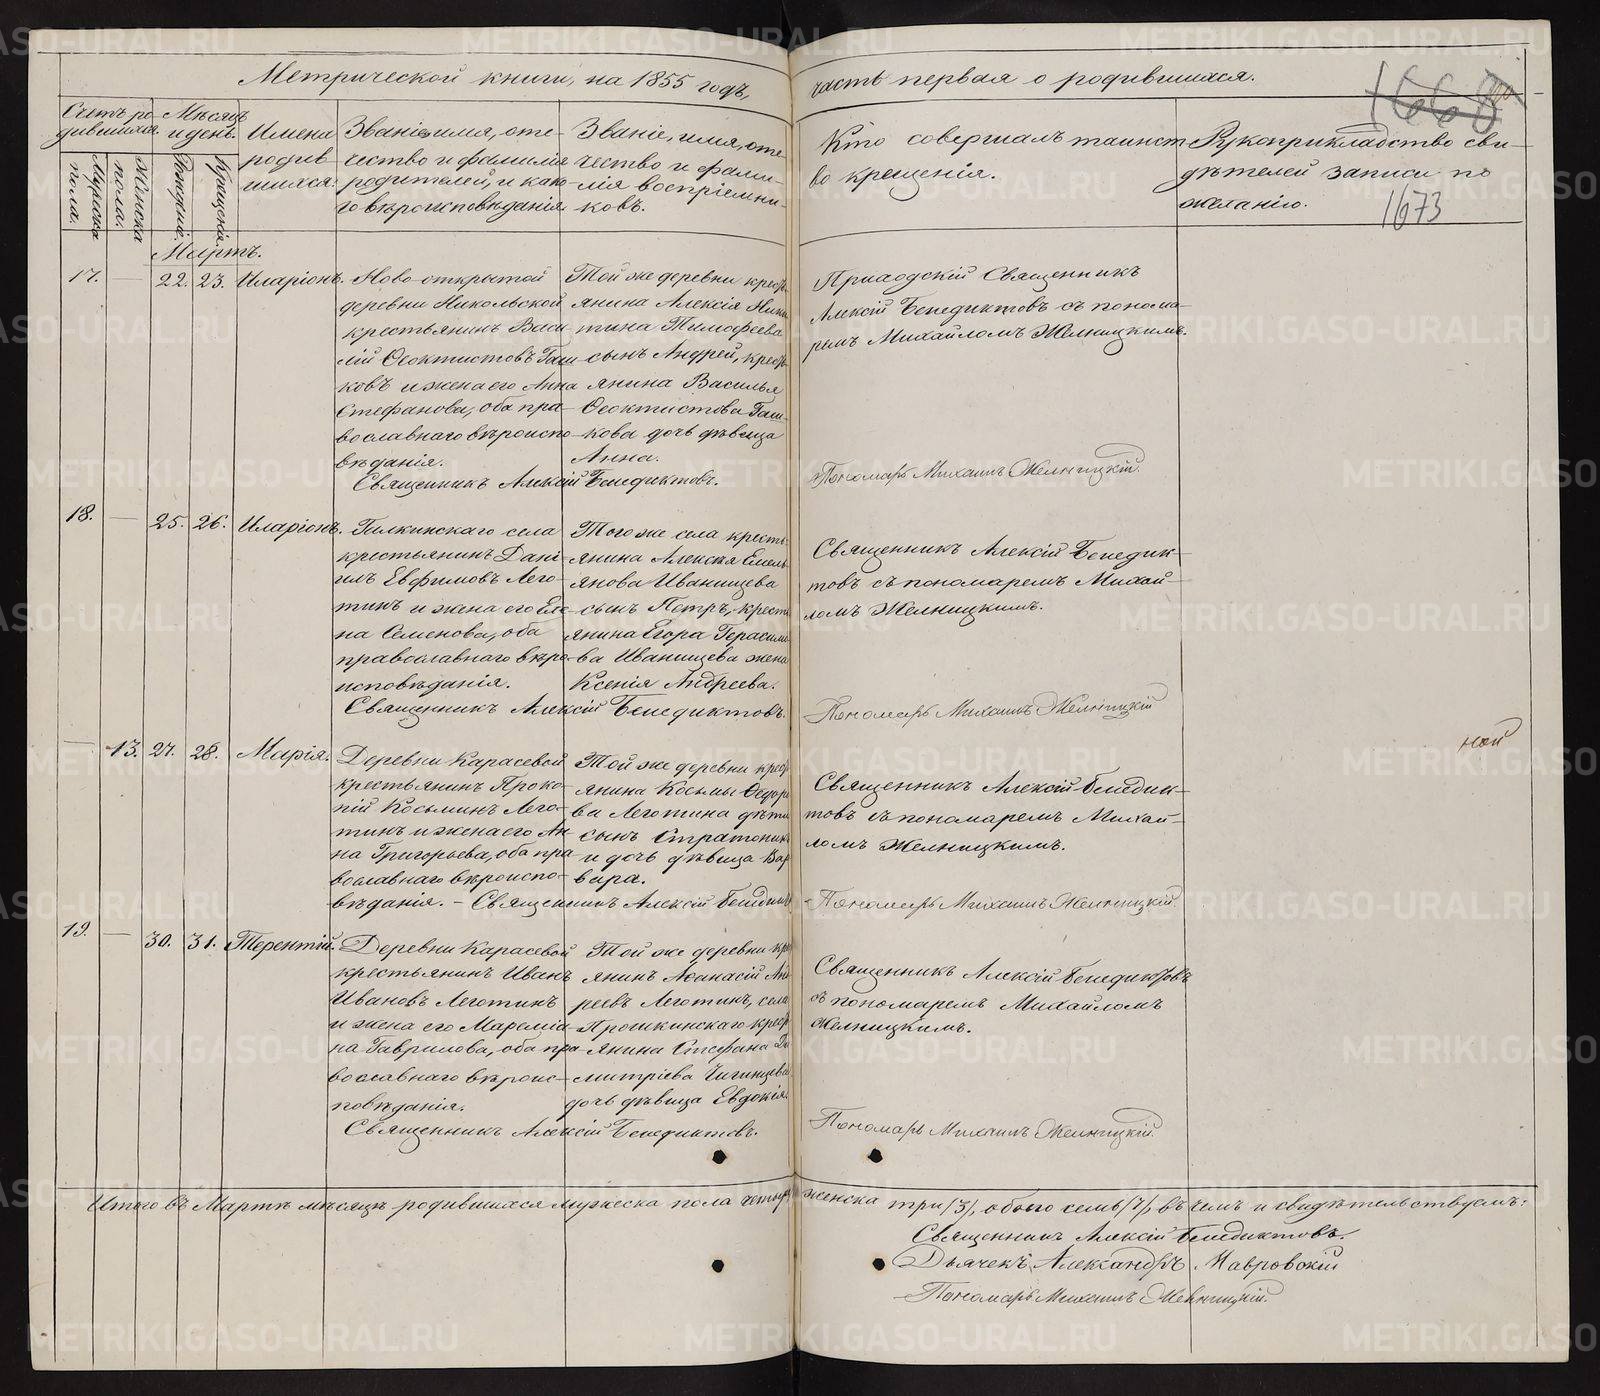 Метрической книги, на 1855 годъ,
часть первая о родившихся.
1668
1673
Счетъ ро-
дившихся.
Мужеска пола.
Женска пола.
Мѣсяцъ
и день.
Рожденія.
Крещенія.
Имена
родив
шихся.
Званіе, имя, оте-
чество и фамилія
родителей, и како-
го вѣроисповѣданія
Званіе, имя, оте-
чество и фами-
лія воспріемни-
ковъ.
Кто совершалъ таинст
во крещенія.
Рукоприкладство сви-
дѣтелей записи по
желанію.
Мартъ.
17. — 22. 23. Иларіонъ.
Ново-открытой
деревни Никольской
крестьянинъ Васи
лій Ѳеоктистовъ Гаш
ковъ и жена его Анна
Стефанова, оба пра-
вославнаго вѣроиспо-
вѣданія.
Той же деревни крест
янина Алексія Ники
тина Тимофеева
сынъ Андрей, крест
янина Василья
Ѳеоктистова Гаш-
кова дочь дѣвица
Анна.
Священникъ Алексій Бенедиктовъ.
Приходскій Священникъ
Алексій Бенедиктовъ съ понома-
ремъ Михайломъ Желницкимъ.
Пономарь Михаилъ Желницкій.
18. — 25. 26. Иларіонъ.
Галкинскаго села
крестьянинъ Дані
илъ Евфимовъ Лего-
тинъ и жена его Еле
на Семенова, оба
православнаго вѣро-
исповѣданія.
Того же села кресть
янина Алексѣя Емель
янова Иванищева
сынъ Петръ, кресть
янина Егора Герасимо
ва Иванищева жена
Ксенія Андреева.
Священникъ Алексій Бенедиктовъ.
Священникъ Алексій Бенедик-
товъ съ пономаремъ Михай-
ломъ Желницкимъ.
Пономарь Михаилъ Желницкій
— 13. 27. 28. Марія.
Деревни Карасевой
крестьянинъ Проко-
пій Косьминъ Лего-
тинъ и жена его Ан
на Григорьева, оба пра
вославнаго вѣроиспо-
вѣданія. – Священникъ Алексій Бенедикт
Той же деревни крест
янина Косьмы Ѳедоро
ва Леготина дѣти
сынъ Стратоникъ
и дочь дѣвица Вар
вара.
Священникъ Алексій Бенедик-
товъ съ пономаремъ Михай-
ломъ Желницкимъ.
Пономарь Михаилъ Желницкій.
ной
19. — 30. 31. Терентій.
Деревни Карасевой
крестьянинъ Иванъ
Ивановъ Леготинъ
и жена его Мареміа
на Гаврилова, оба пра
вославнаго вѣроис-
повѣданія.
Той же деревни кре
янинъ Аѳанасій Анд
реевъ Леготинъ, села
Прошкинскаго крест
янина Стефана Ди
митріева Чигинцева
дочь дѣвица Евдокія.
Священникъ Алексій Бенедиктовъ.
Священникъ Алексій Бенедиктовъ
съ пономаремъ Михайломъ
Желницкимъ.
Пономарь Михаилъ Желницкій.
Итого въ Мартѣ мѣсяцѣ родившихся мужеска пола четыре женска три /3/, обоего семь /7/, въ чемъ и свидѣтельствуемъ:
Священникъ Алексій Бенедиктовъ.
Дьячекъ Александръ Мавровскій
Пономарь Михаилъ Желницкій.
METRIKI.GASO-URAL.RU